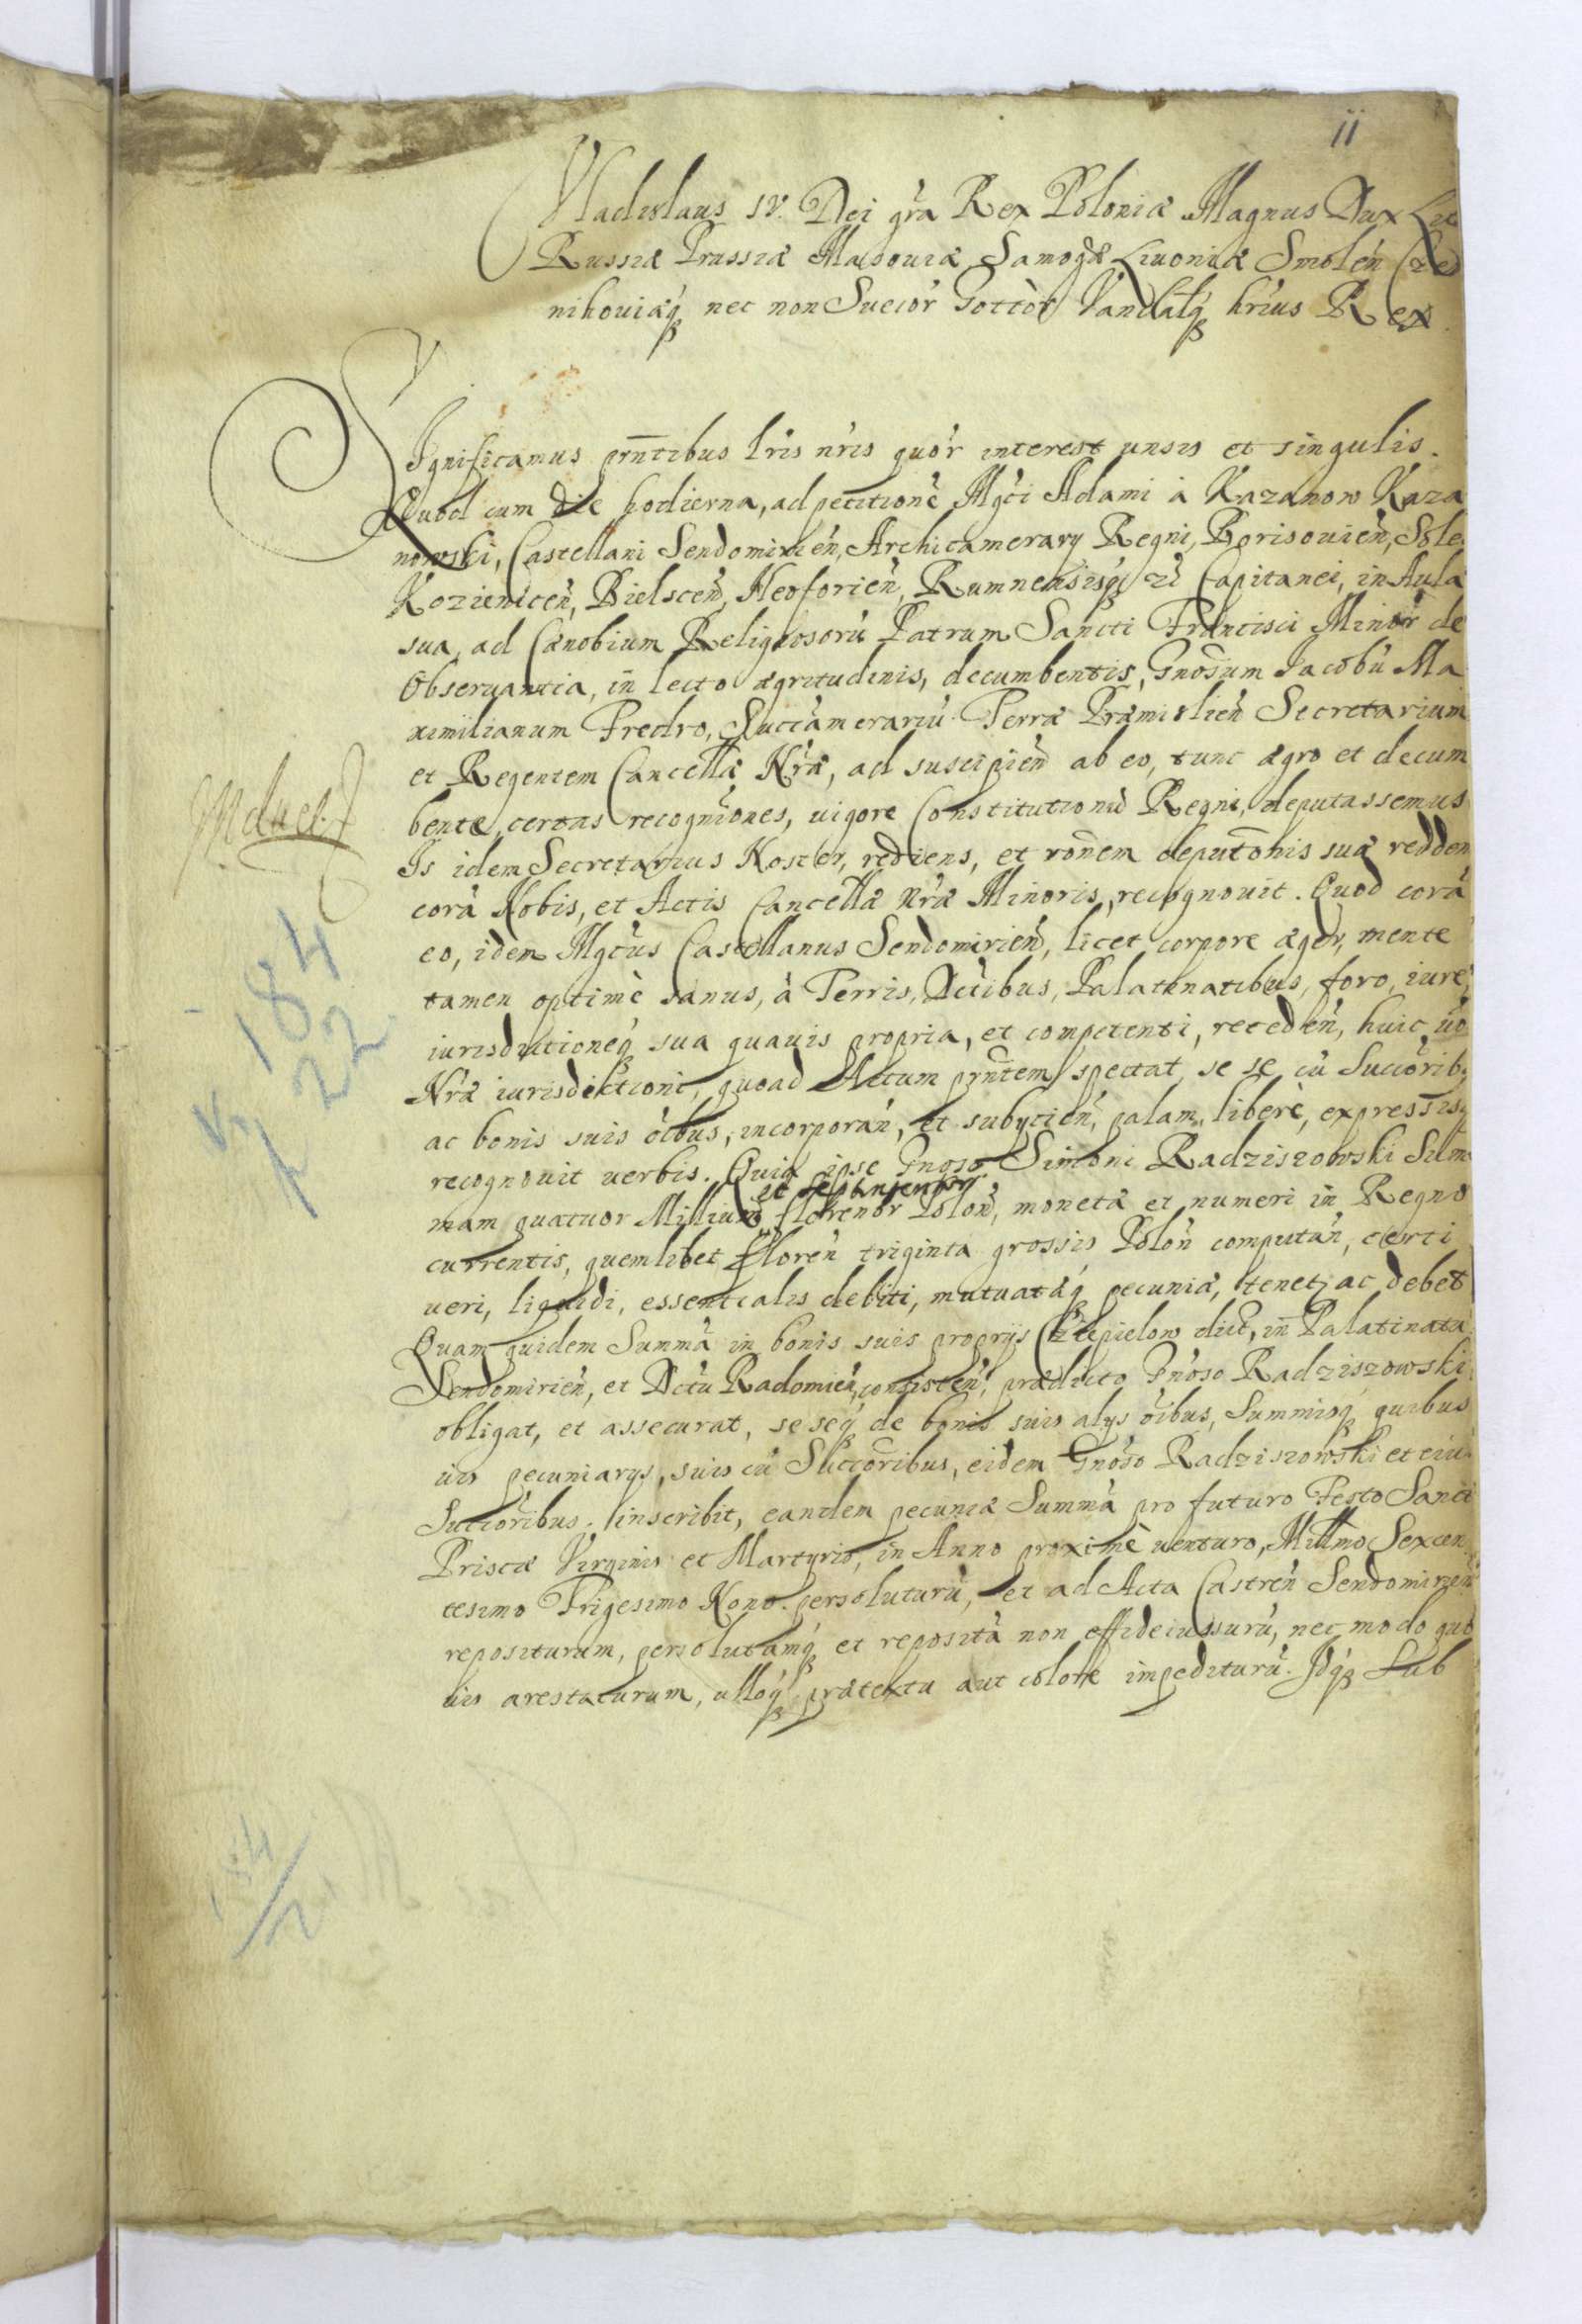 11
Vladislaus IV. Dei gra Rex Poloniæ Magnus Dux Lit
Russiæ Prussiæ Masouiæ Samogæ Liuoniæ Smolen Cze
nihouiæq nec non Suecor Gottor Vandalq hrius Rex
Significamus prntibus lris nris quor interest unsis et singulis.
Quod cum die hodierna, ad petitione Mgci Adami à Kazanow Kaza
nowski, Castellani Sendomirien, Archicamerary Regni, Borisouien, Sole
Kozienicen, Bielscen, Neoforien, Rumnensisq zc Capitanei, in Aula
sua, ad Cænobium Religiosorù Patrum Sancti Francisci Minor de
Obseruantia, in lecto ægritudinis, decumbentis, Gnosum Jacobù Ma
ximilianum Fredro, Succamerariù Terræ Præmislien Secretarium
et Regentem Cancellæ Nræ, ad suscipien ab eo, tunc ægro et decum
bente, certas recogniones, uigore Constitutionù Regni, deputassemus
Is idem Secretarius Noster, rediens, et ronem deputonis suæ redden
corà Nobis, et Actis Cancellæ Nræ Minoris, recognouit. Quod corà
eo, idem Mgcus Castellanus Sendomirien, licet corpore æger, mente
tamen optimè sanus, à Terris, Dctibus, Palatinatibus, foro, iure,
iurisdictioneq sua quauis propria, et competenti, receden, huic uo
Nræ iurisdictioni, quoad Actum prntem spectat, se se cù Succorib
ac bonis suis oibus, incorporan, et subycien, palam, liberè, expressisq
recognouit uerbis. Quia ipse Gnoso Simoni Radziszowski Sum
et septingentor
mam quatuor Millium florenor Polon, monetæ et numeri in Regno
currentis, quemlibet floren triginta grossis Polon computan, certi
ueri, liquidi, essentialis debiti, mutuatæq pecuniæ, tenet, ac debet
Quam quidem Summà in bonis suis proprijs Czepielow dict, in Palatinatu
Sendomirien, et Dctu Radomien, consisten, prædicto Gnoso Radziszowski
obligat, et assecurat, se seq de bonis suis alys oibus, Summisq quibus
uis pecuniarys, suis cù Succoribus, eidem Gnoso Radziszowski et eius
Succoribus, inscribit, eandem pecuniæ Summà pro futuro Festo Sanct
Priscæ Virginis et Martyris, in Anno proximè uenturo, Millmo Sexcen
tesimo Trigesimo Nono persoluturù, et ad Acta Castren Sendomirien
repositurum, persolutamq et reposità non effideiussurù, nec modo quo
uis arestaturum, ulloq prætextu aut colore impediturù. Idq sub
184
22